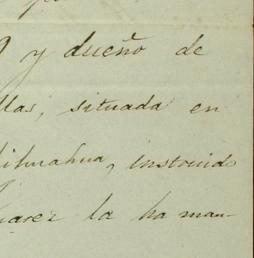 y dueño de
llas, situada en
hihuahua, instruido
uarez la ha man-